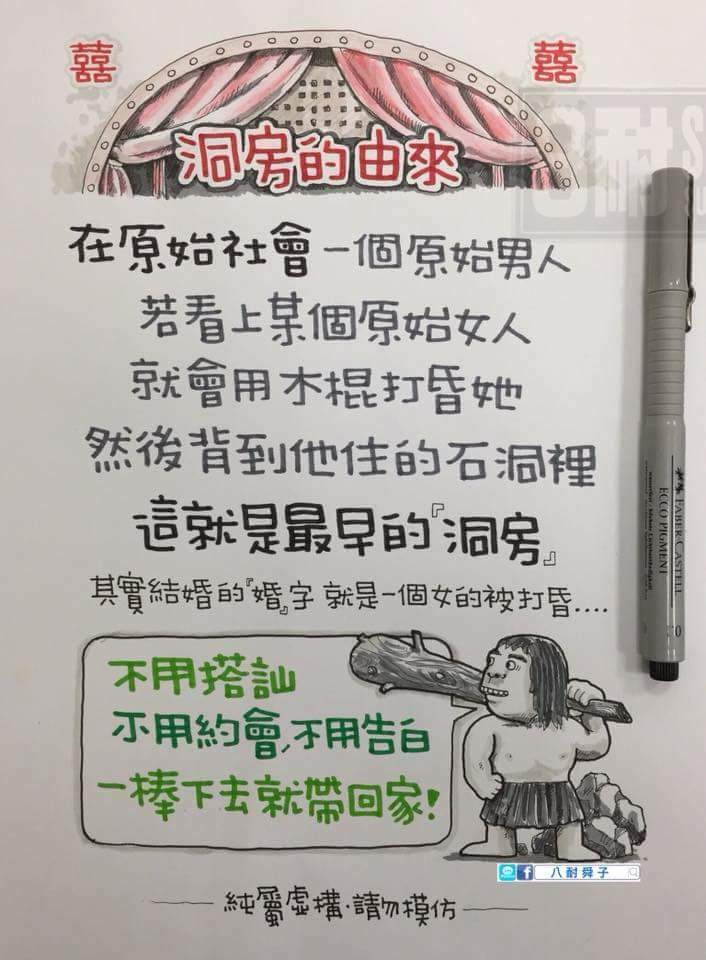 囍 囍
洞房的由來
在原始社會 一個原始男人
若看上某個原始女人
就會用木棍打昏她
然後背到他住的石洞裡
這就是最早的『洞房』
其實結婚的『婚』字 就是一個女的被打昏....
不用搭訕
不用約會、不用告白
一棒下去就帶回家!
八耐舜子
純屬虛構·請勿模仿
FABER-CASTELL
ECCO PIGMENT